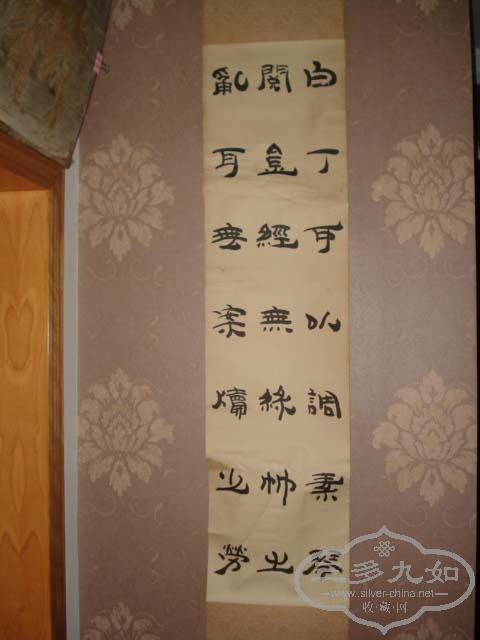 白丁可以調素琴
閱金經無絲竹之
亂耳無案牘之勞
多九如
www.silver-china.net
·收藏网·